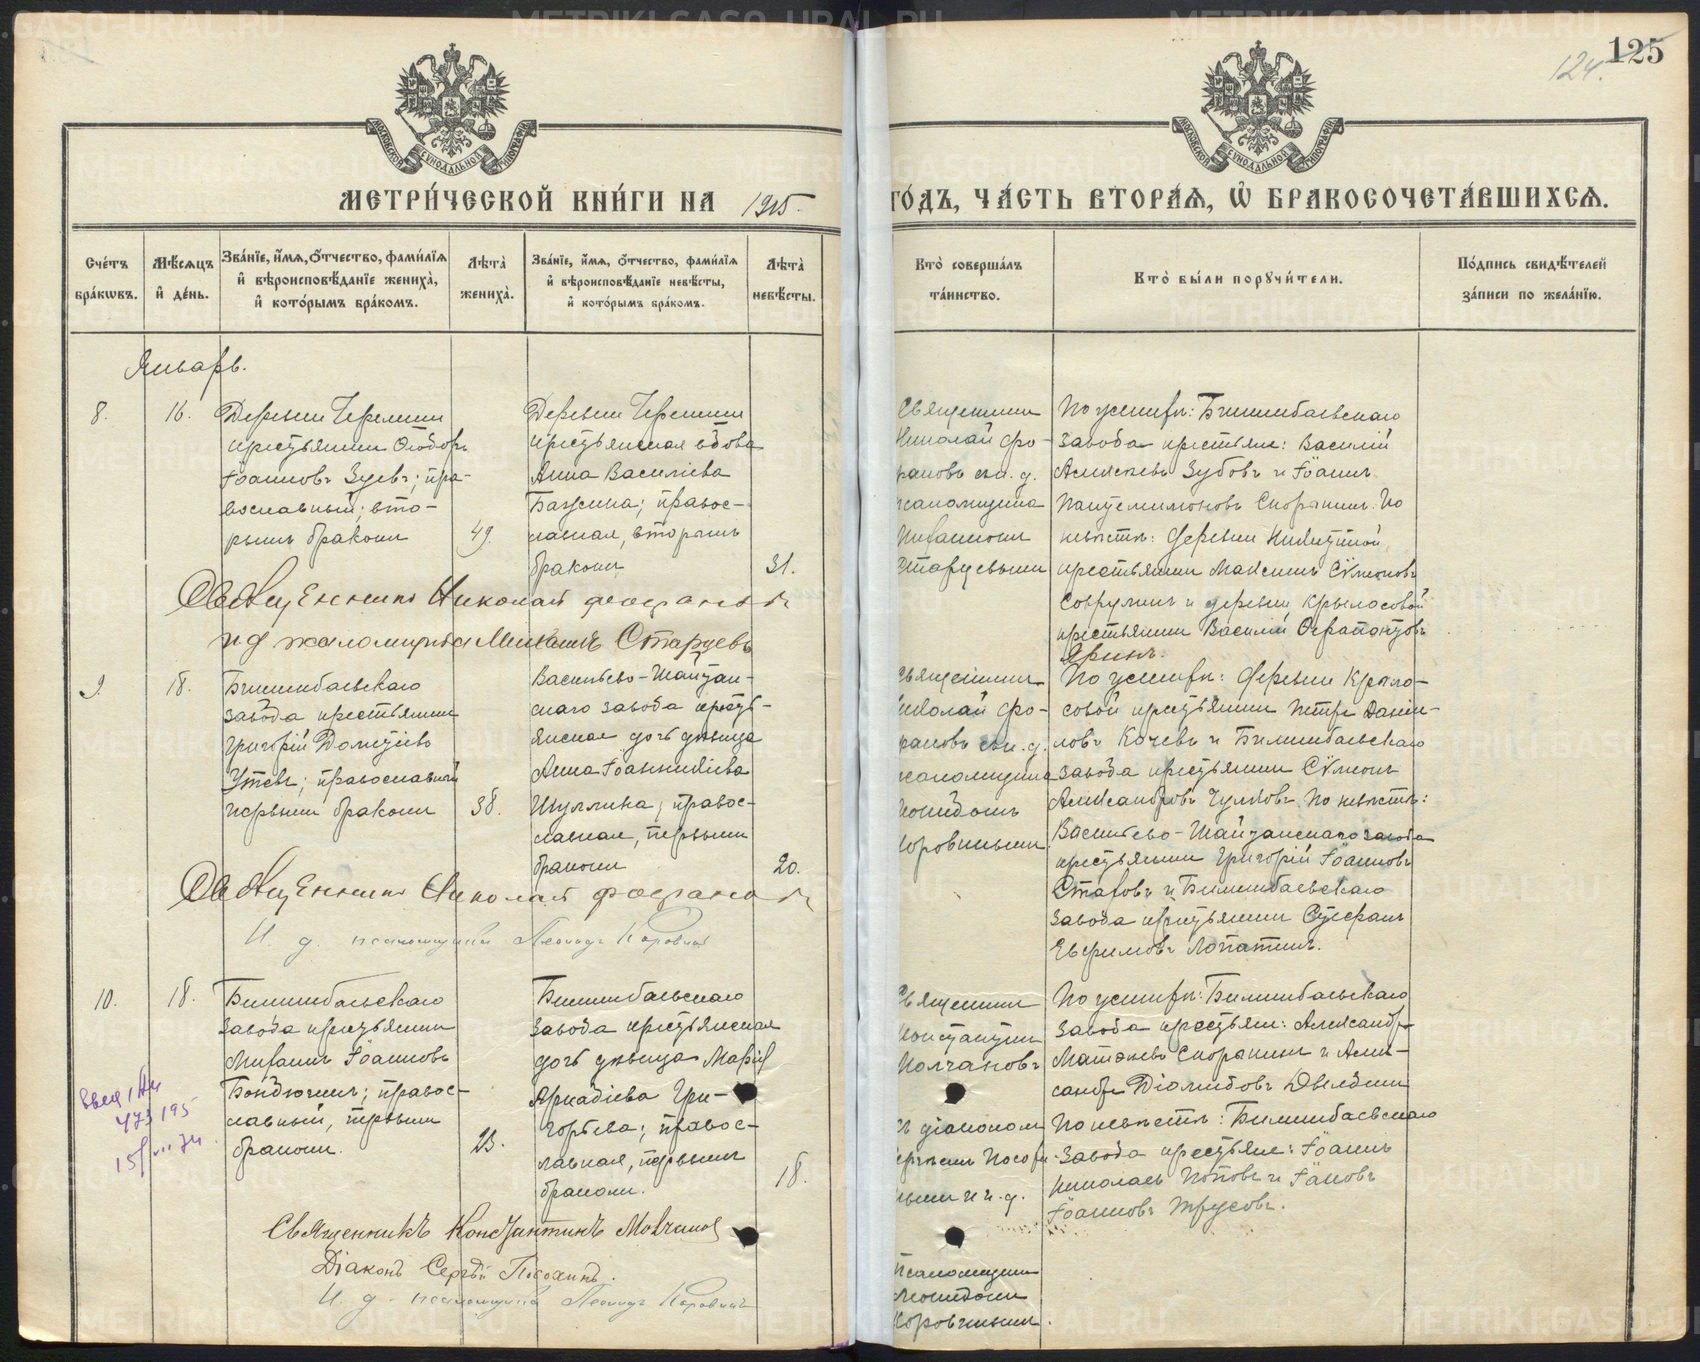 METRIKI.GASO-URAL.RU
125
124.
МОСКОВСКОЙ СѴНОДАЛЬНОЙ ТИПОГРАФІИ
МОСКОВСКОЙ СѴНОДАЛЬНОЙ ТИПОГРАФІИ
МЕТРИ́ЧЕСКОЙ КНИ́ГИ НА 1915.
ГО́ДЪ, ЧА́СТЬ ВТОРА́Ѧ, Ѽ БРАКОСОЧЕТА́ВШИХСѦ.
Сче́тъ бра́кѡвъ.
Мѣ́сѧцъ и҆ де́нь.
Зва́нїе, и҆́мѧ, ѻ҆́тчество, фами́лїѧ и҆ вѣроисповѣ́данїе жениха̀, и҆ кото́рымъ бра́комъ.
Лѣта̀ жениха̀.
Зва́нїе, и҆́мѧ, ѻ҆́тчество, фами́лїѧ и҆ вѣроисповѣ́данїе невѣ́сты, и҆ кото́рымъ бра́комъ.
Лѣта̀ невѣ́сты.
Кто̀ соверша́лъ та́инство.
Кто̀ бы́ли порꙋчи́тели.
По́дпись свидѣ́телей за́писи по жела́нїю.
Январь.
8.
16.
Деревни Черемши
крестьянинъ Ѳеодоръ
Іоанновъ Зуевъ; пра-
вославный; вто-
рымъ бракомъ
49.
Деревни Черемши
крестьянская вдова
Анна Васильева
; правос-
лавная, вторымъ
бракомъ
31.
Священникъ
Николай Фо-
рановъ съ и. д.
псаломщика
Михаиломъ
Старцевымъ
По женихѣ: Билимбаевскаго
завода крестьяне: Василій
Алексѣевъ Зубовъ и Іоаннъ
Пантелимоновъ Скорынинъ. По
невѣстѣ: деревни
крестьянинъ Максимъ Сѵмеоновъ
и деревни Крылосовой
крестьянинъ Василій
Яринъ.
Священникъ Николай Форановъ
и д псаломщика Михаилъ Старцевъ
9.
18.
Билимбаевскаго
завода крестьянинъ
Григорій Дометіевъ
Утевъ; православный
первымъ бракомъ
38.
Васильево-Шайтан-
скаго завода кресть-
янская дочь дѣвица
Анна Іоанникіева
Шуллина; правос-
лавная, первымъ
бракомъ
20.
Священникъ
Николай Фо-
рановъ съ и. д.
псаломщика
Леонидомъ
Коровинымъ
По женихѣ: деревни Крыло-
совой крестьянинъ Петръ Данiи-
ловъ Кочевъ и Билимбаевскаго
завода крестьянинъ Сѵмеонъ
Александровъ Чулковъ. По невѣстѣ:
Васильево-Шайтанскаго завода
крестьянинъ Григорій Іоанновъ
Старовъ и Билимбаевскаго
завода крестьянинъ Стефанъ
Евфимовъ Лопатинъ.
Священникъ Николай Форановъ
И. д. псаломщика Леонидъ Коровинъ
10.
18.
Билимбаевскаго
завода крестьянинъ
Михаилъ Іоанновъ
Бондюгинъ; правос-
лавный, первымъ
бракомъ.
23.
Билимбаевскаго
завода крестьянская
дочь дѣвица Марія
Аркадіева Гри-
горьева; правос-
лавная, первымъ
бракомъ.
18.
Священникъ
Константинъ
Молчановъ
съ діакономъ
Сергѣемъ Посохи-
нымъ и и. д.
псаломщика
Леонидомъ
Коровинымъ.
По женихѣ: Билимбаевскаго
завода крестьяне: Александръ
Матѳеевъ Скорынинъ и Алек-
сандръ Діомидовъ
По невѣстѣ: Билимбаевскаго
завода крестьяне: Іоаннъ
Николаевъ Поповъ и Іаковъ
Іоанновъ Трусовъ.
Священникъ Константинъ Молчановъ
Діаконъ Сергѣй Посохинъ.
И. д. псаломщика Леонидъ Коровинъ